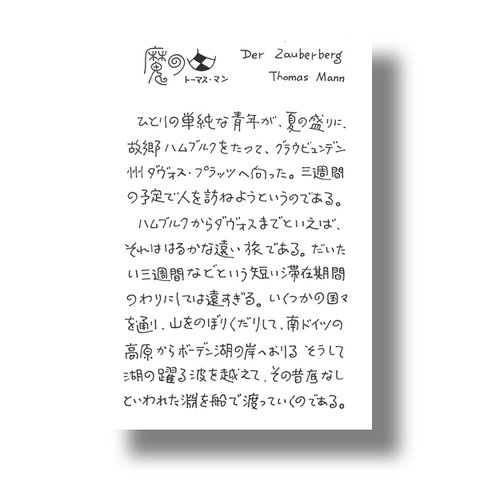 魔の山
トーマス・マン
Der Zauberberg
Thomas Mann
ひとりの単純な青年が、夏の盛りに、
故郷ハムブルクをたって、グラウビュンデン
州ダヴォス・プラッツへ向った。三週間
の予定で人を訪ねようというのである。
ハムブルクからダヴォスまでといえば、
それははるかな遠い旅である。だいた
い三週間などという短い滞在期間
のわりにしては遠すぎる。いくつかの国々
を通り、山をのぼりくだりして、南ドイツの
高原からボーデン湖の岸へおりる そうして
湖の躍る波を越えて、その昔底なし
といわれた淵を船で渡っていくのである。